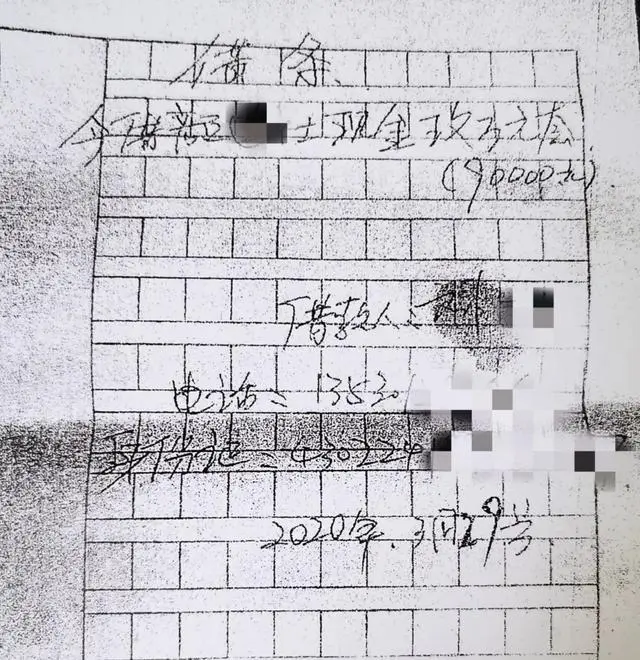 借条
今借 士现金玖万元整
(90000元)
借款人:
电话:13530
身份证:430224
2020年.3月29号